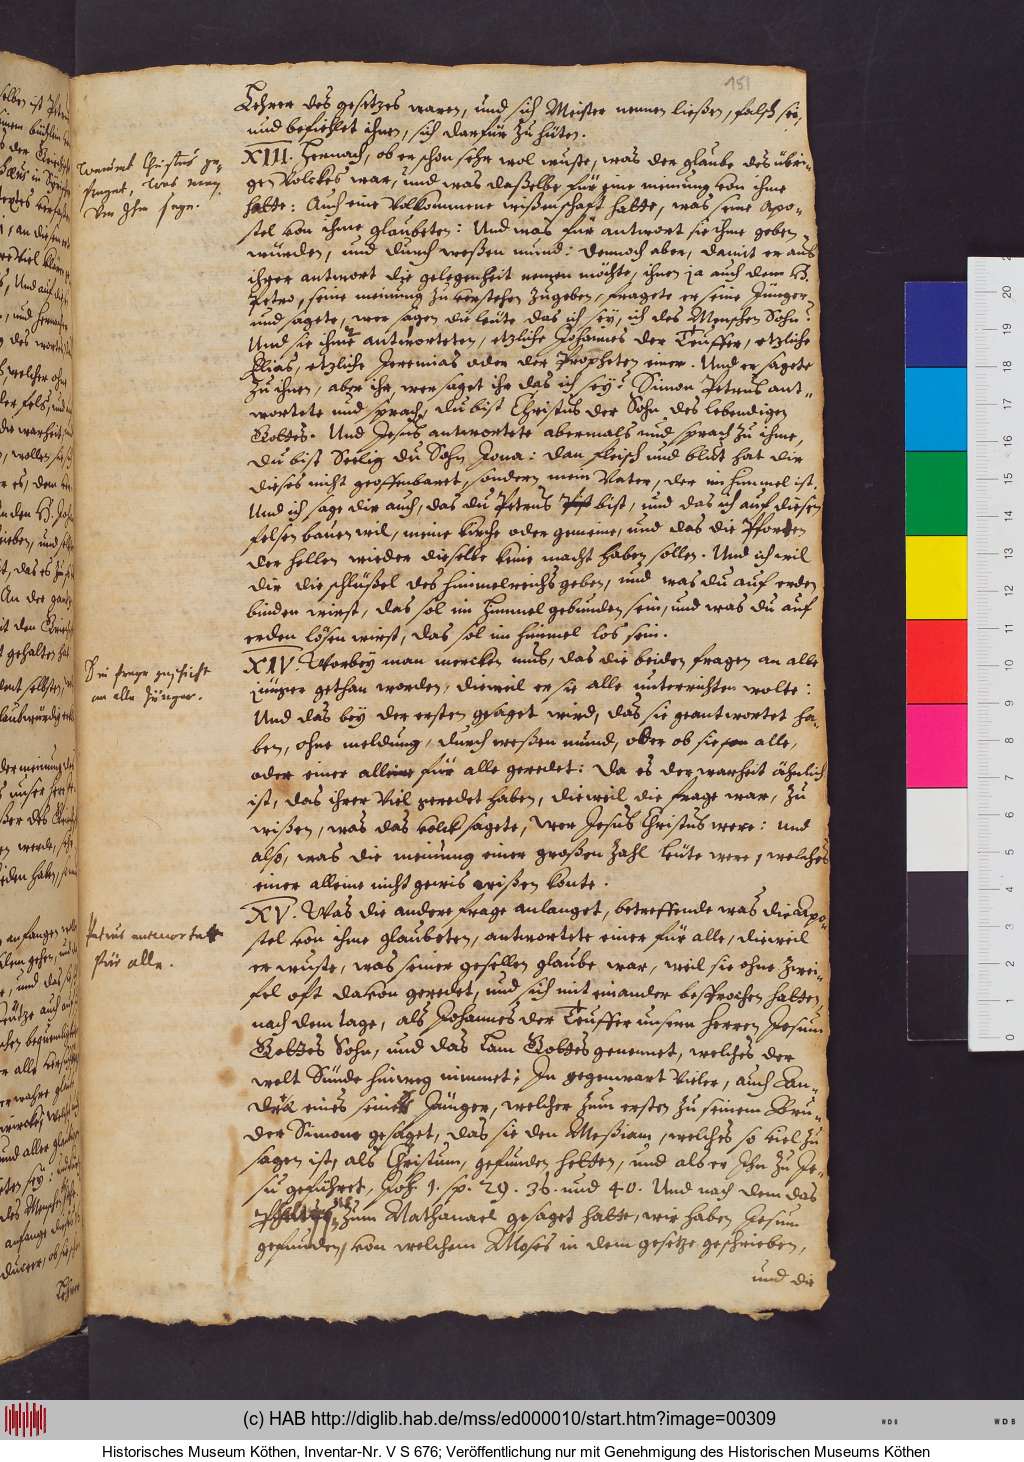 151
Lehrer des gesetzes waren, und sich Meister nennen ließen, falsch sei,
und befiehlet ihnen, sich darfür zu hüten.
XIII. Hernach, ob er schon sehr wol wuste, was der glaube des übri-
gen Volckes war, und was daßelbe für eine meinung von ihme
hatte: Auch eine volkommene wißenschaft hatte, was seine Apo-
stel von ihme glaubeten: Und was für antwort sie ihme geben
würden, und durch weßen mund: Dennoch aber, damit er aus
ihrer antwort die gelegenheit nemen möchte, ihnen ja auch dem H.
Petro, seine meinung zu verstehen zugeben, fragete er seine Jünger
und sagete, wer sagen die leute das ich sey, ich des Menschen Sohn?
Und sie ihme antworteten, etzliche Johannes der Teuffer, etzliche
Elias, etzliche Jeremias oder der Propheten einer. Und er sagete
zu ihnen, aber ihr, wer saget ihr das ich sey? Simon Petrus ant-
wortete und sprach, du bist Christus der Sohn des lebendigen
Gottes. Und Jesus antwortete abermals und sprach zu ihme,
du bist Seelig du Sohn Jona: dan fleisch und blut hat dir
dieses nicht geoffenbaret, sondern mein Vater, der im himmel ist.
Und ich sage dir auch, das du Petrus bist, und das ich auf diesen
felsen bauen wil, meine kirche oder gemeine, und das die Pforten
der hellen wieder dieselbe keine macht haben sollen. Und ich wil
dir die schlüßel des himmelreichs geben, und was du auf erden
binden wirst, das sol im himmel gebunden sein, und was du auf
erden lösen wirst, das sol im himmel los sein.
XIV. Worbey man mercken mus, das die beiden fragen an alle
Jünger gethan worden, dieweil er sie alle unterrichten wolte:
Und das bey der ersten gesaget wird, das sie geantwortet ha-
ben, ohne meldung, durch weßen mund, oder ob sie alle,
oder einer alleine für alle geredet: Da es der warheit ähnlich
ist, das ihrer viel geredet haben, dieweil die frage war, zu
wißen, was das volck sagete, wer Jesus Christus were: und
also, was die meinung einer großen zahl leute were, welches
einer alleine nicht gewis wißen konte.
XV. Was die andere frage anlanget, betreffende was die Apo-
stel von ihme glaubeten, antwortete einer für alle, dieweil
er wuste, was seiner gesellen glaube war, weil sie ohne zwei-
fel oft davon geredet, und sich mit einander besprochen hatten,
nach dem tage, als Johannes der Teuffer unsern Herren Jesum
Gottes Sohn, und das Lam Gottes genennet, welches der
welt Sünde hinweg nimmet; In gegenwart vieler, auch An-
dreæ eines seiner Jünger, welcher zum ersten zu seinem Bru-
der Simone gesaget, das sie den Meßiam, welches so viel zu
sagen ist, als Christum, gefunden hetten, und als er ihn zu Je-
su geführet, Joh. 1. sp. 29. 36. und 40. Und nach dem das
Philippus zum Nathanael gesaget hatte, wir haben Jesum
gefunden, von welchem Moses in dem gesetze geschrieben,
und die
Worumb Christus ge-
fraget, was man
von Ihm sage.
Die frage geschicht
an alle Jünger.
Petrus antwortet
für alle.
(c) HAB http://diglib.hab.de/mss/ed000010/start.htm?image=00309
WDB
WDB
Historisches Museum Köthen, Inventar-Nr. V S 676; Veröffentlichung nur mit Genehmigung des Historischen Museums Köthen